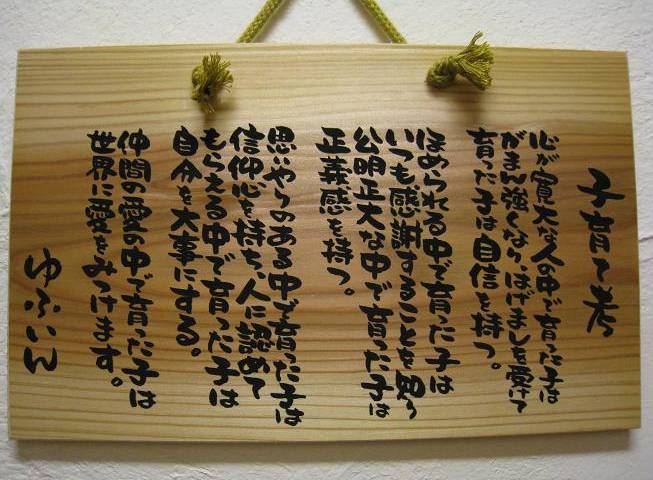 子育て考
心が寛大な人の中で育った子は
がまん強くなり、はげましを受けて
育った子は自信を持つ。
ほめられる中で育った子は
いつも感謝することを思い
公明正大な中で育った子は
正義感を持つ。
思いやりのある中で育った子は
信仰心を持ち、人に認めて
もらえる中で育った子は
自分を大事にする。
仲間の愛の中で育った子は
世界に愛をみつけます。
ゆふいん